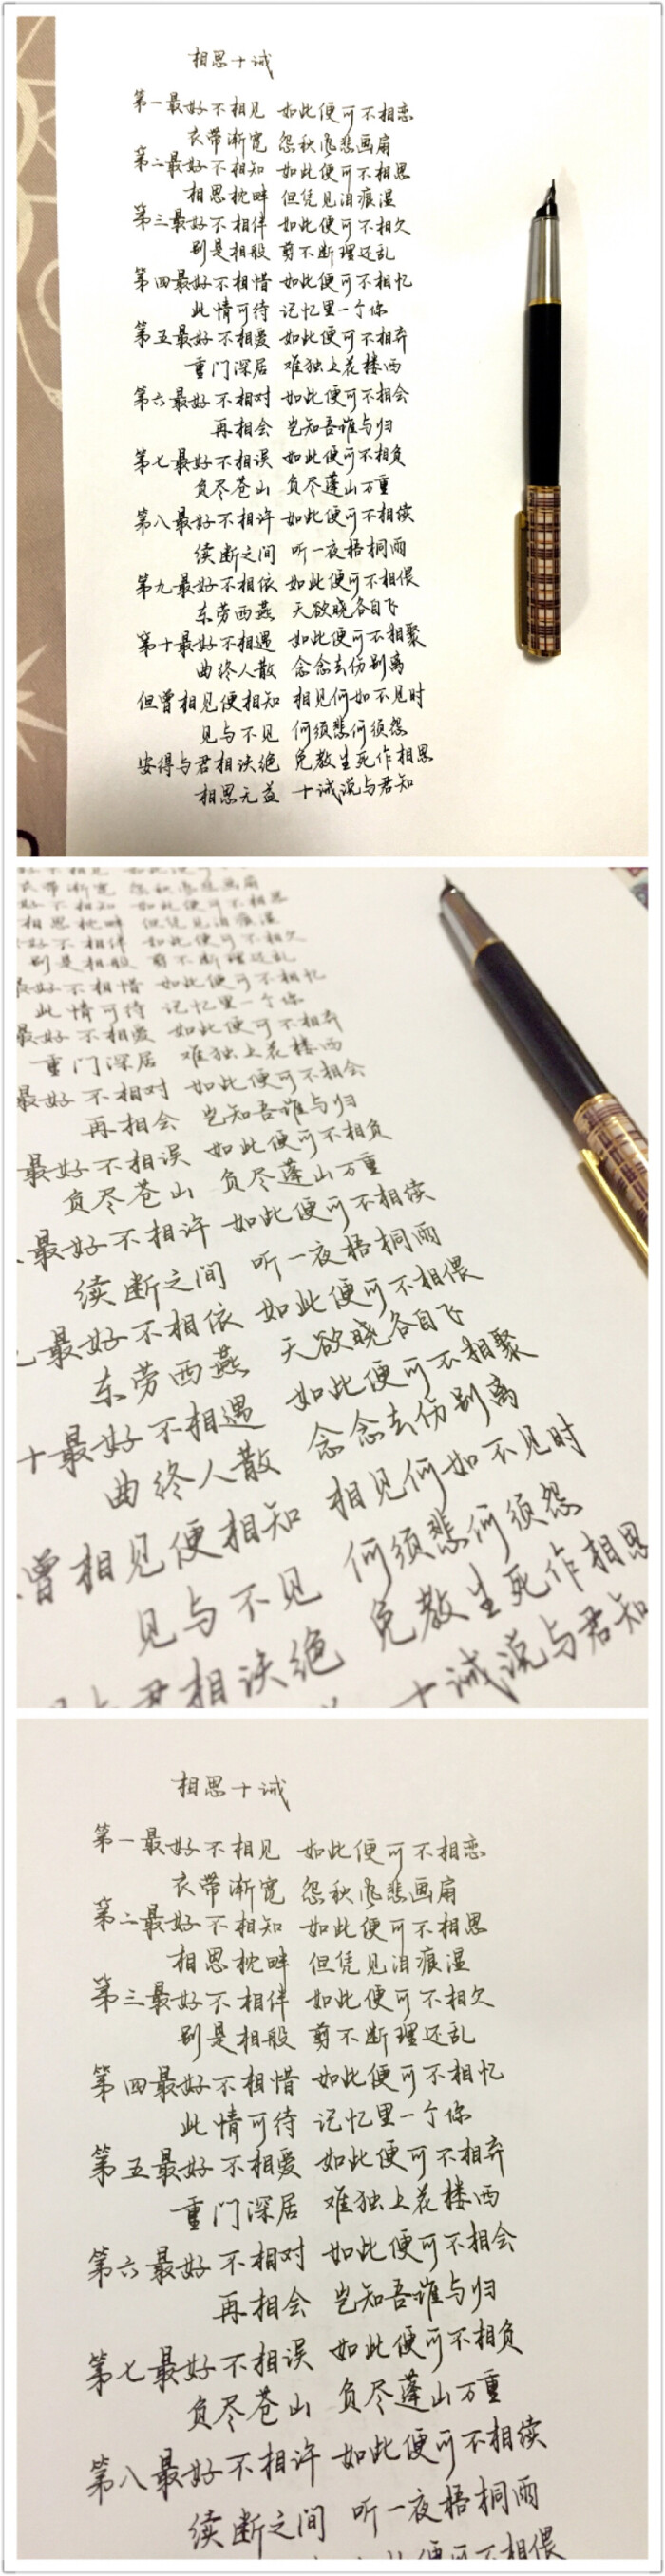 相思十诫
第一最好不相见 如此便可不相恋
衣带渐宽 怨秋风悲画扇
第二最好不相知 如此便可不相思
相思枕畔 但凭见泪痕湿
第三最好不相伴 如此便可不相欠
别是相般 剪不断理还乱
第四最好不相惜 如此便可不相忆
此情可待 记忆里一个你
第五最好不相爱 如此便可不相弃
重门深居 难独上花楼西
第六最好不相对 如此便可不相会
再相会 岂知吾谁与归
第七最好不相误 如此便可不相负
负尽苍山 负尽蓬山万重
第八最好不相许 如此便可不相续
续断之间 听一夜梧桐雨
第九最好不相依 如此便可不相偎
东劳西燕 天欲晓各自飞
第十最好不相遇 如此便可不相聚
曲终人散 念念去伤别离
但曾相见便相知 相见何如不见时
见与不见 何须悲何须怨
安得与君相诀绝 免教生死作相思
相思无益 十诫说与君知
衣带渐宽 怨秋风悲画扇
好不相知 如此便可不相思
相思枕畔 但凭见泪痕湿
好不相伴 如此便可不相欠
别是相般 剪不断理还乱
最好不相惜 如此便可不相忆
此情可待 记忆里一个你
最好不相爱 如此便可不相弃
重门深居 难独上花楼西
最好不相对 如此便可不相会
再相会 岂知吾谁与归
最好不相误 如此便可不相负
负尽苍山 负尽蓬山万重
最好不相许 如此便可不相续
续断之间 听一夜梧桐雨
最好不相依 如此便可不相偎
东劳西燕 天欲晓各自飞
十最好不相遇 如此便可不相聚
曲终人散 念念去伤别离
曾相见便相知 相见何如不见时
见与不见 何须悲何须怨
与君相诀绝 免教生死作相思
十诫说与君知
相思十诫
第一最好不相见 如此便可不相恋
衣带渐宽 怨秋风悲画扇
第二最好不相知 如此便可不相思
相思枕畔 但凭见泪痕湿
第三最好不相伴 如此便可不相欠
别是相般 剪不断理还乱
第四最好不相惜 如此便可不相忆
此情可待 记忆里一个你
第五最好不相爱 如此便可不相弃
重门深居 难独上花楼西
第六最好不相对 如此便可不相会
再相会 岂知吾谁与归
第七最好不相误 如此便可不相负
负尽苍山 负尽蓬山万重
第八最好不相许 如此便可不相续
续断之间 听一夜梧桐雨
便可不相偎